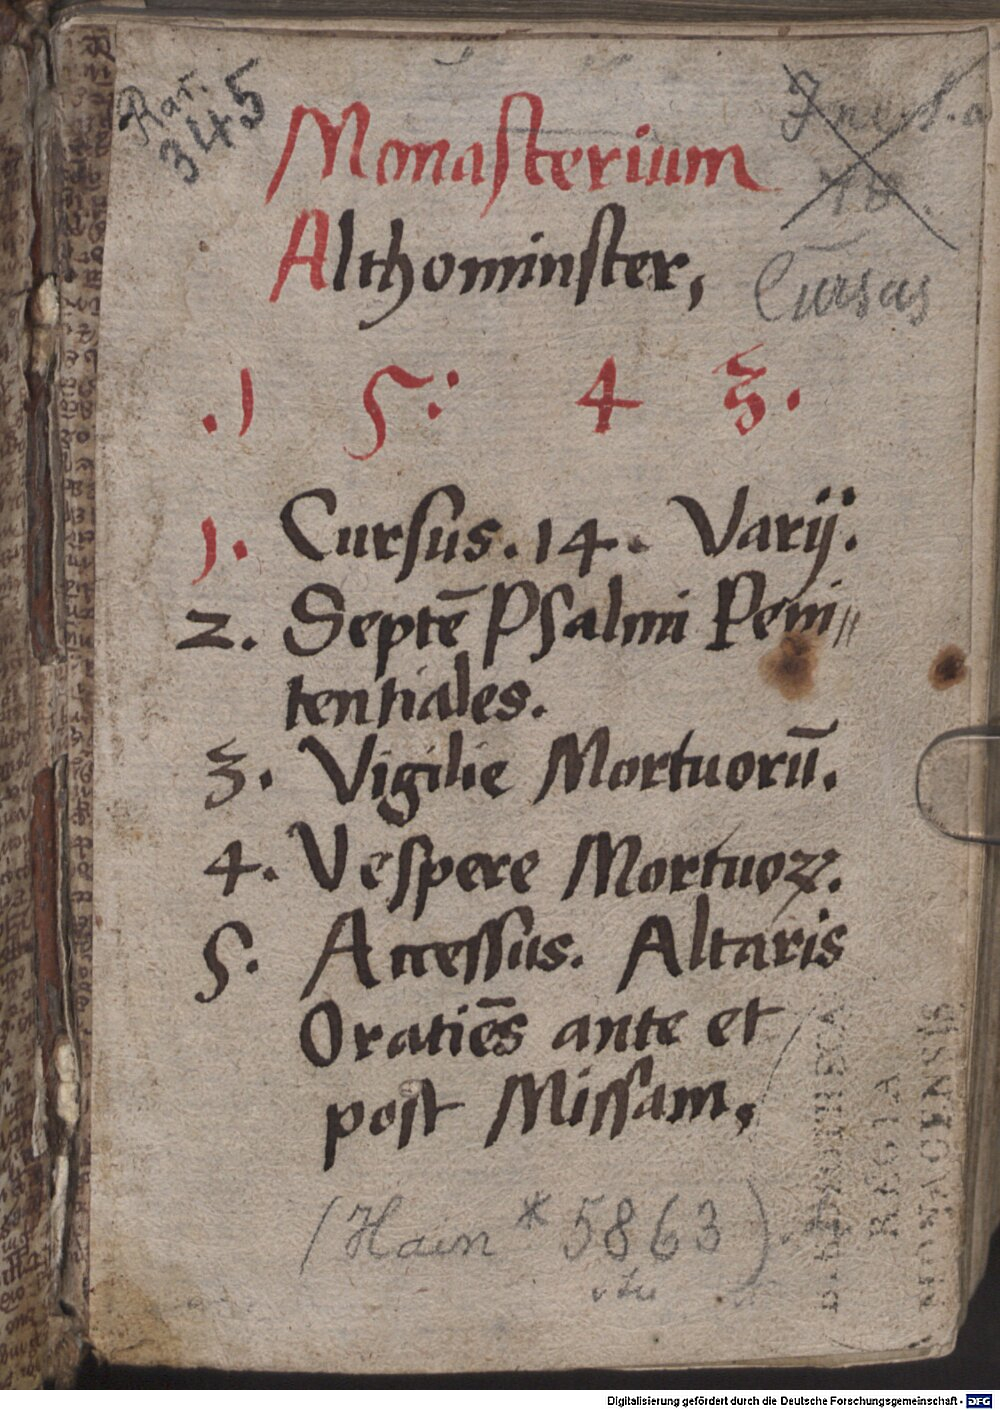 Rar.
345
Monasterium
Althominster,
Cursus
.1 5: 4 3.
1. Cursus. 14. Varij.
2. Septē Psalmi Peni⸗
tentiales.
3. Vigilie Mortuorū.
4. Vespere Mortuoꝝ.
5. Accessus. Altaris
Oratiēs ante et
post Missam,
(Hain * 5863)
BIBLIOTHECA
REGIA
MONACENSIS
Digitalisierung gefördert durch die Deutsche Forschungsgemeinschaft - DFG